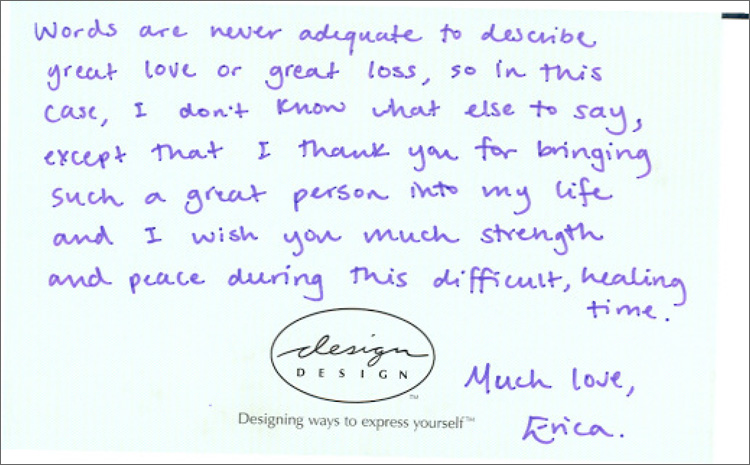 Words are never adequate to describe
great love or great loss, so in this
case, I don't know what else to say,
except that I thank you for bringing
such a great person into my life
and I wish you much strength
and peace during this difficult, healing
time.
design
DESIGN
TM
Designing ways to express yourself™
Much love,
Erica.